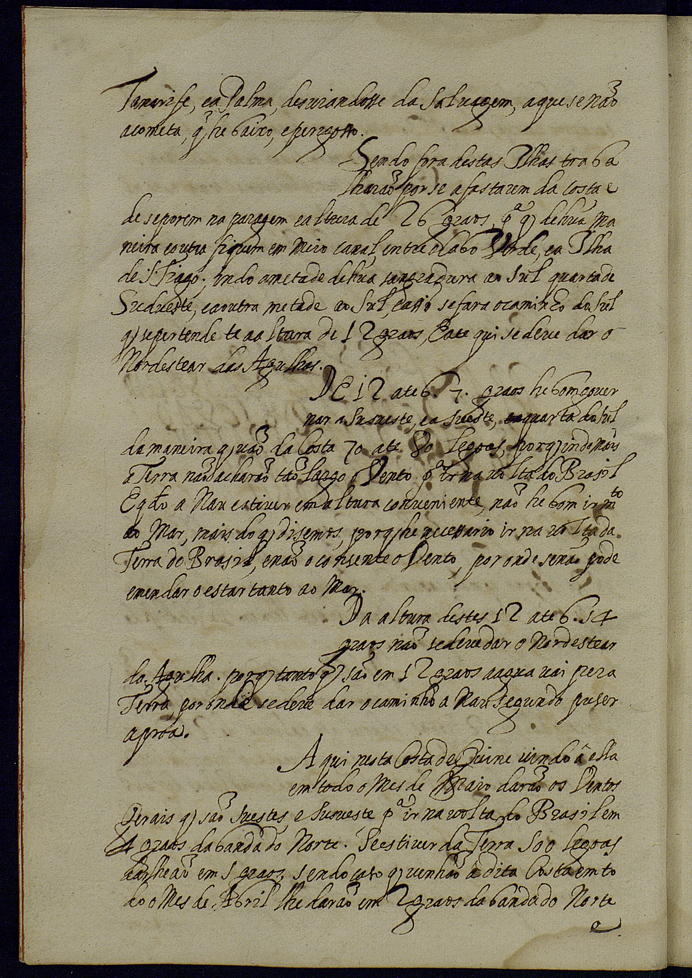 Tanarife, ea Palma, desuiandosse da Saluagem, aque se não
acometa, q̃ he baixo, e perigoso.
Sendo fora destas Ilhas traba
lharão por se afastarem da Costa e
de seporem na paragem ealtura de 26 graos, pª q̃ de hũa ma
neira eoutra fiquem em meio Canal entre o Cabo Verde, ea Ilha
de S. Tiago. indo ametade dehũa sangradura ao Sul quarta de
Sudueste, eaoutra metade ao Sul, e assi se fara ocaminho do Sul
q̃ se pertende te aaltura de 12 graos, e ate qui se deue dar o
Nordestear das Agulhas.
De 12 ate 6. 7. graos he bom gouer
nar a Susueste, ea Sueste, eaquarta do Sul
da maneira q̃ vão da Costa 70 ate 80 legoas, porq̃ indo mais
a Terra não acharão tão largo o Vento pª ir na volta do Brasil
E qdo a Nau estiuer em altura conueniente, não he bom ir mto
ao Mar, mais do q̃ disemos, porq̃ he necessario ir na volta da
Terra do Brasil, enão o consente o Vento, por onde senão pode
emendar o estar tanto ao Mar.
Da altura destes 12 ate 6. 5 4
graos não se deue dar o Nordestear
da Agulha. porq̃ tanto q̃ são em 12 graos aagua vai pera
Terra por onde se deue dar ocaminho a Nau segundo puser
aproa.
Aqui nesta Costa de Guine vindo â ella
em todo o Mes de Maio darão os Ventos
Gerais q̃ são Suestes e Susueste pª ir na volta do Brasil em
4 graos da banda do Norte. Se estiuer da Terra 100 legoas
dar lhe ão em 5 graos, sendo caso q̃ venhão a dita Costa em to
do o Mes de Abril lhe darão em 2 graos da banda do Norte
e